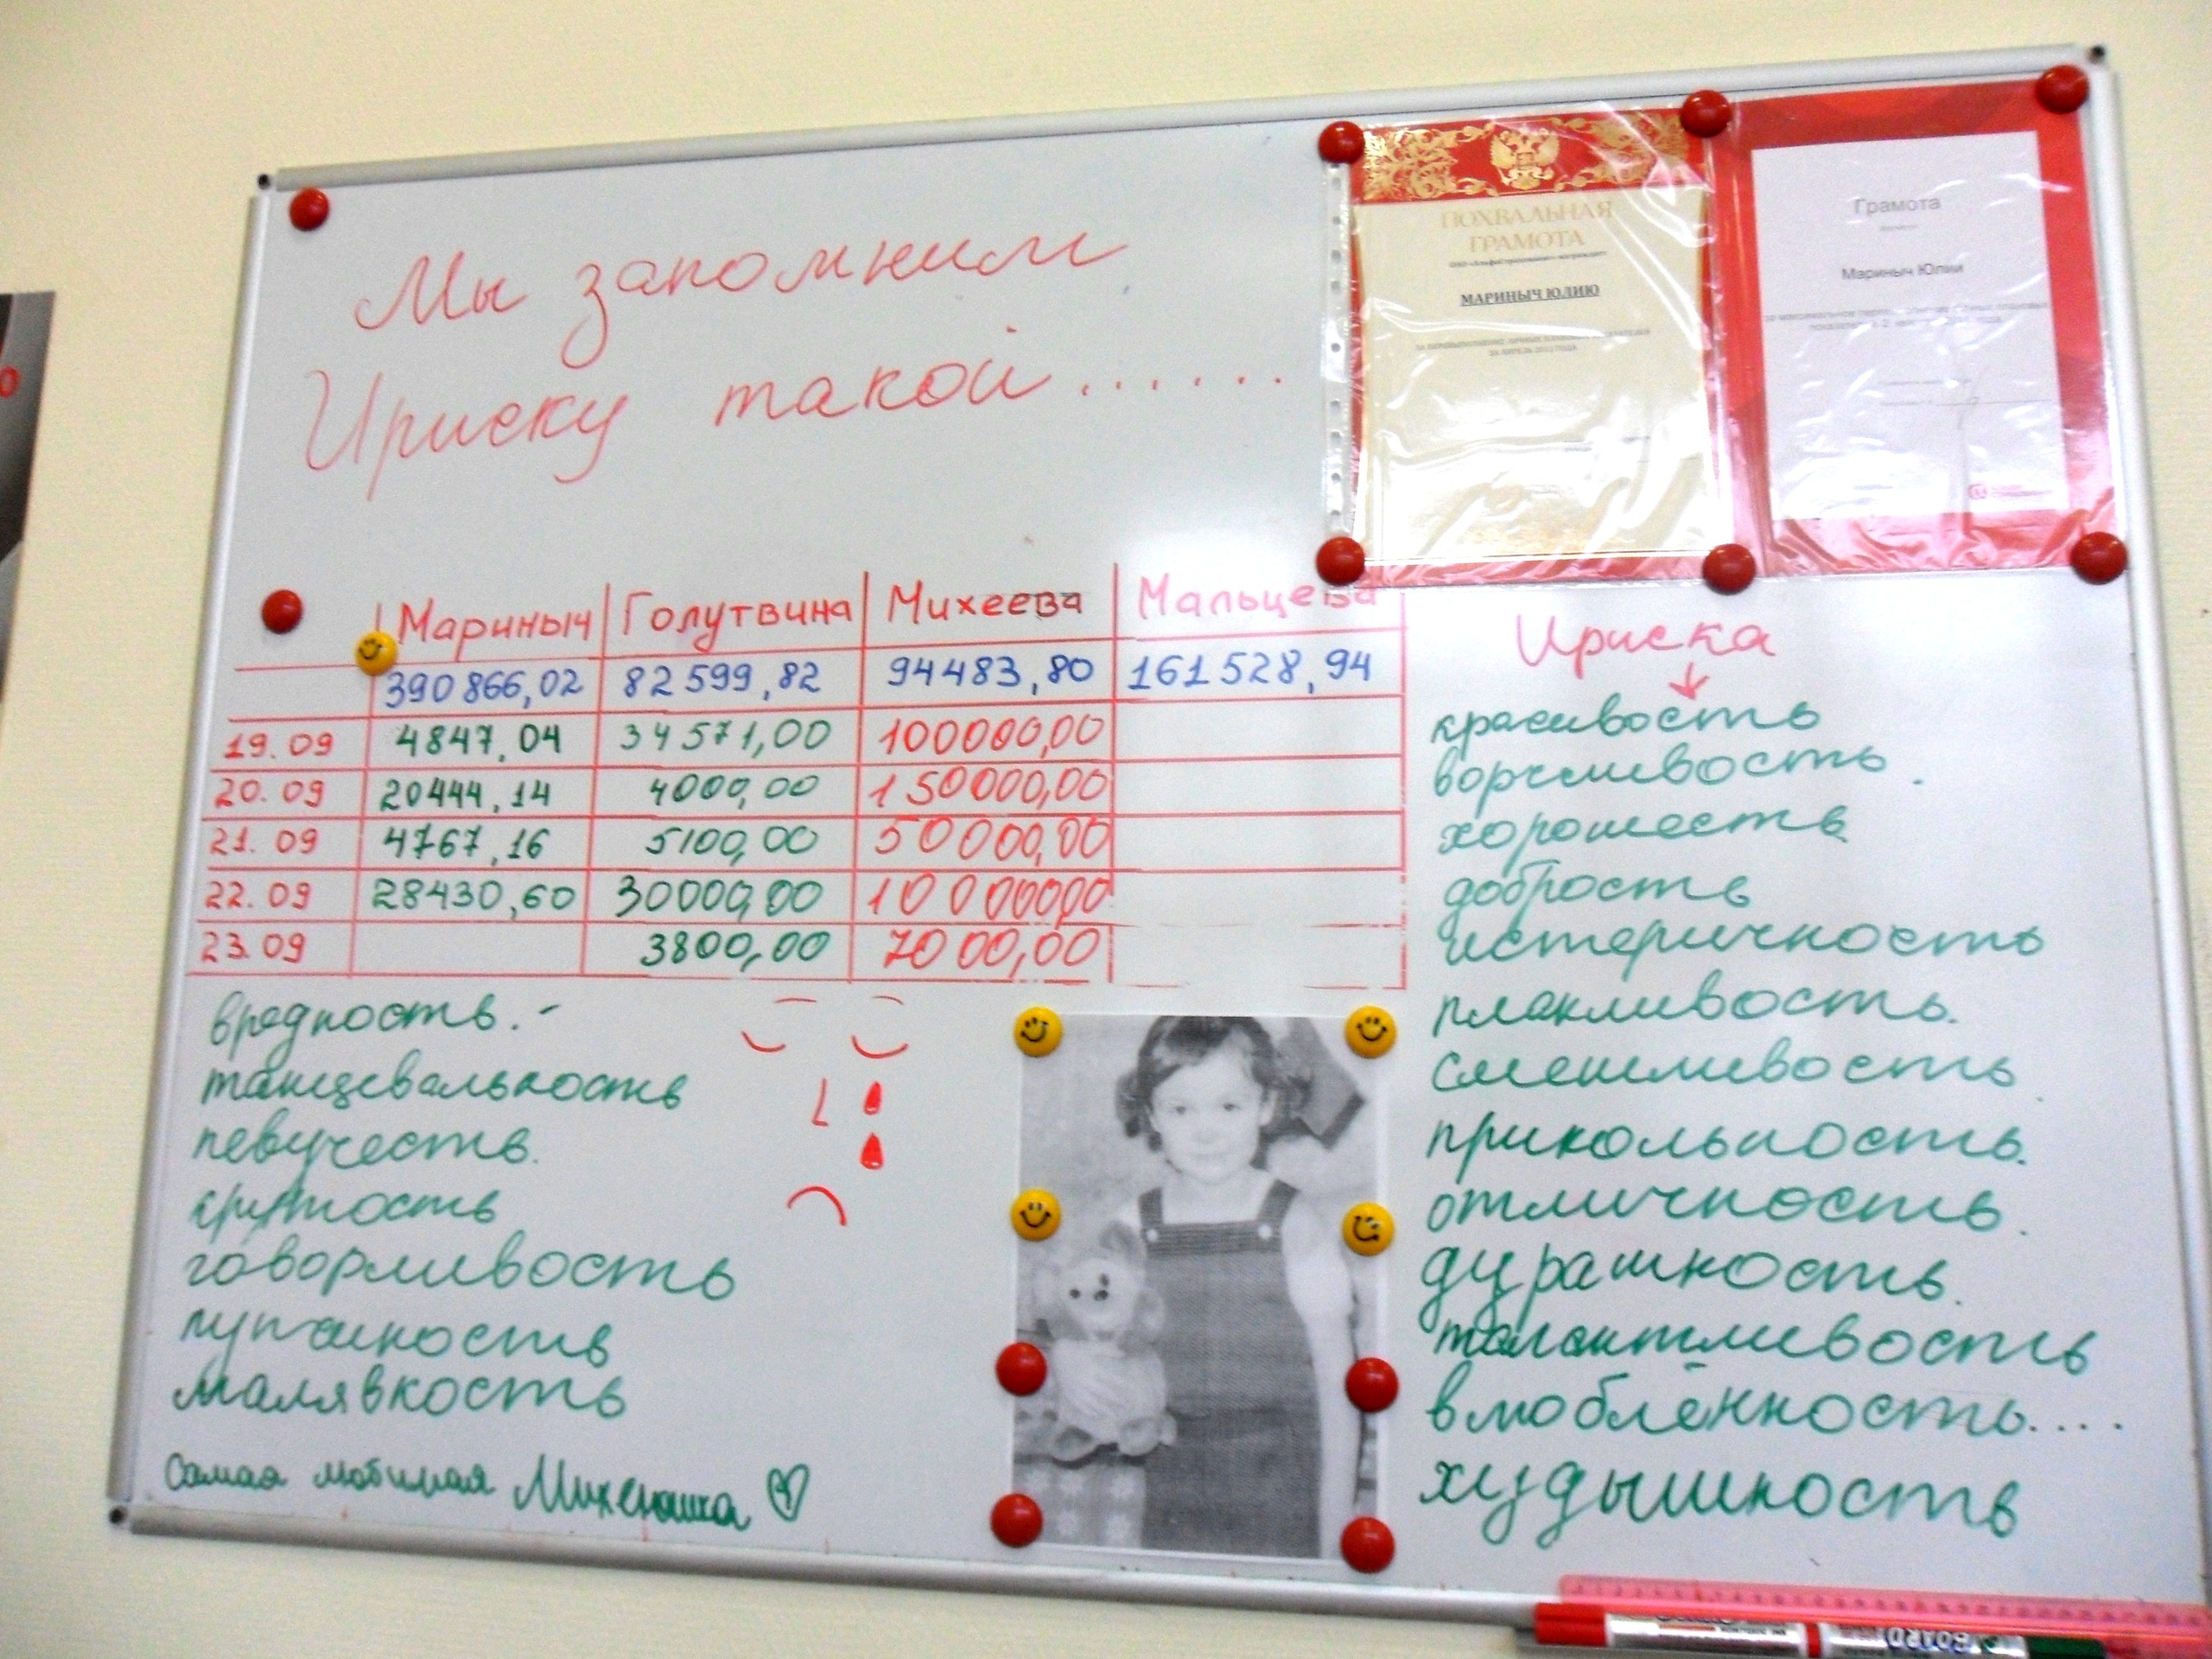 Мы запомним
Ириску такой......
ПОХВАЛЬНАЯ
ГРАМОТА
МАРИНЫЧ ЮЛИЮ
ЗА АПРЕЛЬ
Грамота
Мариныч Юлии
Мариныч Голутвина Михеева Мальцева
390866,02 82599,82 94483,80 161528,94
19.09 4847,04 34571,00 100000,00
20.09 20444,14 4000,00 150000,00
21.09 4767,16 5100,00 50000,00
22.09 28430,60 30000,00 1000000,00
23.09 3800,00 7000,00
Ириска
красивость
ворчливость.
хорошесть
добрость
истеричность
плакливость.
смешливость
прикольность.
отличность.
дурашность.
талантливость
влюблённость....
худышность
вредность. -
танцевальность
певучесть.
крутость
говорливость
малявкость
самая любимая Михеюшка
BOARD